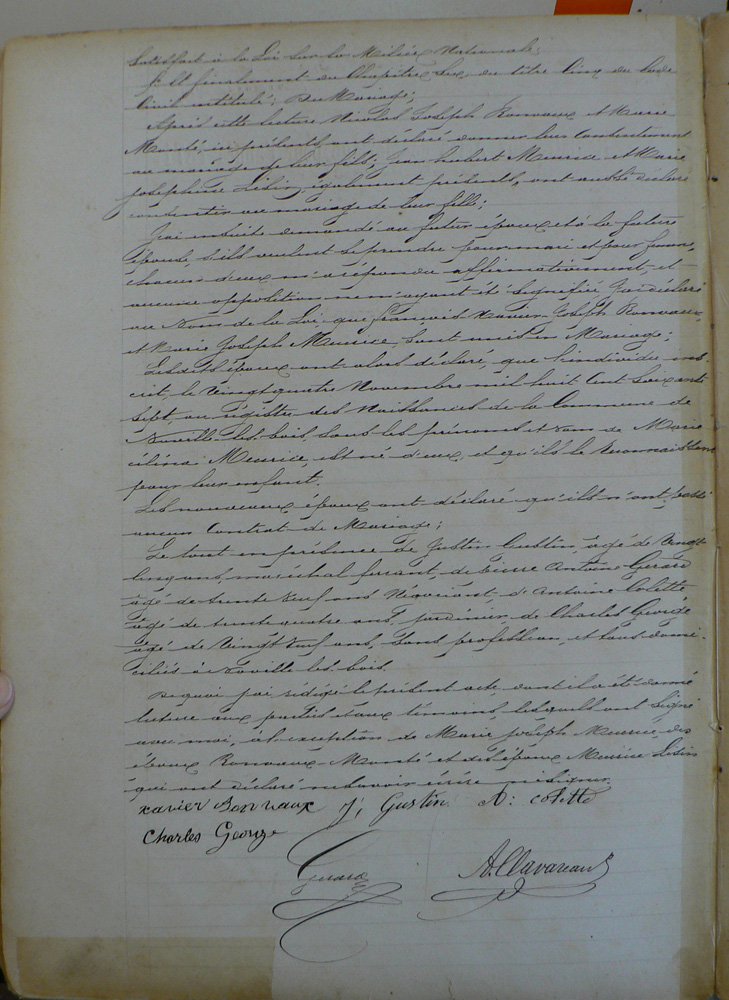 Satisfait à la Loi sur la Milice Nationale;
5° Et finalement du Chapitre six du titre cinq du Code
Civil intitulé: Du Mariage;
Après cette lecture Nicolas Joseph Ronvaux et Marie
Monté, ici présents, ont déclaré donner leur consentement
au mariage de leur fils; Jean hubert Meurice et Marie
josephine Lisin, également présents, ont aussi déclaré
consentir au mariage de leur fille;
J'ai ensuite demandé au futur époux et à la future
épouse, s'ils veulent se prendre pour mari et pour femme,
chacun d'eux m'a répondu affirmativement, et
aucune opposition ne m'ayant été signifiée, J'ai déclaré
au Nom de la Loi, que françois Xavier Joseph Ronvaux,
et Marie Joseph Meurice, sont unis en Mariage;
Lesdits époux ont alors déclaré, que l'individu ins-
crit, le vingt quatre Novembre mil huit Cent soixante
sept, au Régistre des Naissances de la Commune de
Noville-les-bois, sous les prénoms et nom de Marie
célina Meurice, est né d'eux, et qu'ils le reconnaissent
pour leur enfant.
Les nouveaux époux ont déclaré qu'ils n'ont passé
aucun Contrat de Mariage;
Le tout en présence de Justin Gustin, âgé de vingt
cinq ans, maréchal ferrant, de Pierre Antoine Gerard
âgé de trente neuf ans Négociant, d'Antoine Colette
âgé de trente quatre ans, jardinier, de Charles George
âgé de vingt neuf ans, sans profession, et tous domi-
ciliés à Noville les bois.
De quoi j'ai rédigé le présent acte, dont il a été donné
lecture aux parties et aux témoins, lesquels ont signé
avec moi, à l'exception de Marie joseph Meurice, des
époux Ronvaux-Monté et des époux Meurice Lisin
qui ont déclaré ne savoir écrire ni signer
xavier Ronvaux J, Gustin A: colette
Charles George
Gerard A. Clavareau